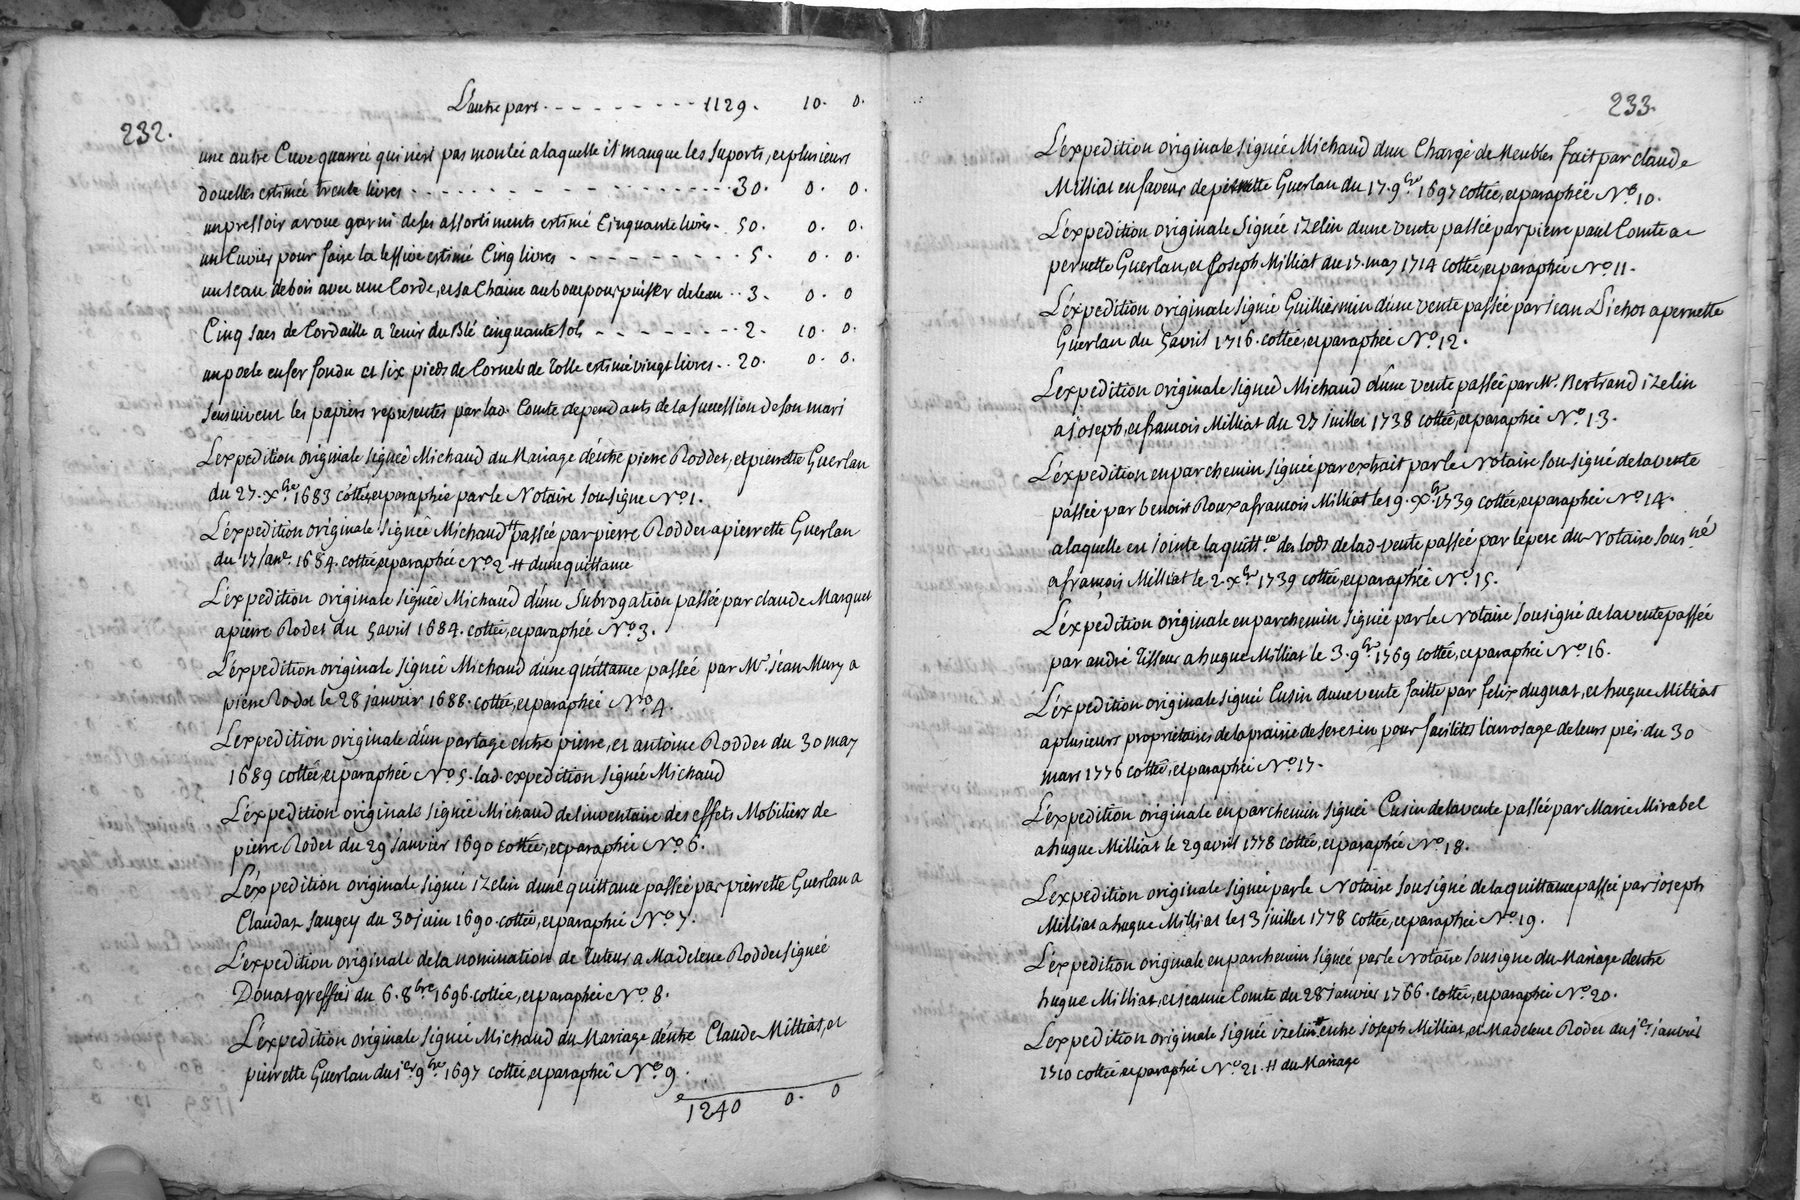 L'autre part - - - - - - - - - 1129. 10. 0.
232.
une autre Cuve quarrée qui n'est pas montée a laquelle il manque les suports, et plusieurs
douelles estimée trente livres - - - - - - - - - - 30. 0. 0.
un pressoir a roue garni de ses assortiments estimé Cinquante livres - . 50. 0. 0.
un Cuvier pour faire la lessive estimé Cinq livres - - - - - - - - - 5. 0. 0.
un seau de bois avec une Corde, et sa Chaine au bout pour puiser de leau . . 3. 0. 0
Cinq sacs de Cordaille a tenir du Blé cinquante sols - - - - - - - - 2. 10. 0.
un poele en fer fondu et six pieds de Cornets de Tolle estimé vingt livres . . 20. 0. 0.
sensuivent les papiers representés par lad. Comte dependants de la succession de son mari
L'expedition originale signée Michaud du Mariage d'entre pierre Rodder, et pierrette Guerlan
du 27. Xbre 1683 cottée, et paraphée par le Notaire soussigné No. 1.
L'expedition originale signée Michaud # passée par pierre Rodder a pierrette Guerlan
du 17 Janr. 1684. cottée, et paraphée No. 2 # dune quittance
L'expedition originale signée Michaud d'une Subrogation passée par claude Marquet
a pierre Roder du 5 avril 1684. cottée, et paraphée No. 3.
L'expedition originale signée Michaud d'une quittance passée par Mr. jean Mury a
pierre Roder le 28 janvier 1688. cottée, et paraphée No. 4.
L'expedition originale d'un partage entre pierre, et antoine Rodder du 30 may
1689 cottée, et paraphée No. 5. lad. expedition signée Michaud
L'expedition originale signée Michaud de l'inventaire des effets Mobiliers de
pierre Roder du 29 Janvier 1690 cottée, et paraphée No. 6.
L'expedition originale signée izelin d'une quittance passée par pierrette Guerlan a
Claudar Saugey du 30 juin 1690. cottée, et paraphée No. 7.
L'expedition originale de la nomination de Tuteur a Madelene Rodder signée
Donat greffier du 6. 8bre 1696. cottée, et paraphée No. 8.
L'expedition originale signée Michaud du Mariage d'entre Claude Milliat, et
pierrette Guerlan du jer. 9bre 1697 cottée, et paraphée No. 9.
1240 0. 0
233.
L'expedition originale signée Michaud d'un Chargé de Meubles fait par claude
Milliat en faveur de pernette Guerlan du 17. 9bre 1697 cottée, et paraphée No. 10.
L'expedition originale signée izelin d'une vente passée par pierre paul Comte a
pernette Guerlan, et Joseph Milliat du 17. may 1714 cottée, et paraphée No. 11.
L'expedition originale signée Guillermin d'une vente passée par jean Lichot a pernette
Guerlan du 5 avril 1716. cottée, et paraphée No. 12.
L'expedition originale signée Michaud d'une vente passée par Mr. Bertrand izelin
a joseph, et francois Milliat du 27 juillet 1738 cottée, et paraphée No. 13.
L'expedition en parchemin signée par extrait par le Notaire soussigné de la vente
passée par benoit Roux a francois Milliat le 19. Xbre 1739 cottée, et paraphée No. 14.
a laquelle est jointe la quittce. des lods de lad. vente passée par le pere du Notaire soussné
a françois Milliat le 2. Xbre 1739 cottée, et paraphée No. 15.
L'expedition originale en parchemin signée par le Notaire soussigné de la vente passée
par andré Tisseur a hugue Milliat le 3. 9bre 1769 cottée, et paraphée No. 16.
L'expedition originale signée Cusin d'une vente faitte par felix duguat, et hugue Milliat
a plusieurs proprietaires de la prairie de seresin pour faciliter l'arrosage de leurs prés. du 30
mars 1776 cottée, et paraphée No. 17.
L'expedition originale en parchemin signée Cusin de la vente passée par Marie Mirabel
a hugue Milliat le 29 avril 1778 cottée, et paraphée No. 18.
L'expedition originale signée par le Notaire soussigné de la quittance passée par joseph
Milliat a hugue Milliat le 13 juillet 1778 cottée, et paraphée No. 19.
L'expedition originale en parchemin signée par le Notaire soussigné du Mariage d'entre
hugue Milliat, et jeanne Comte du 28 janvier 1766. cottée, et paraphée No. 20.
L'expedition originale signée izelin # entre joseph Milliat, et Madelene Roder du jer. janvier
1710 cottée, et paraphée No. 21. # du Mariage